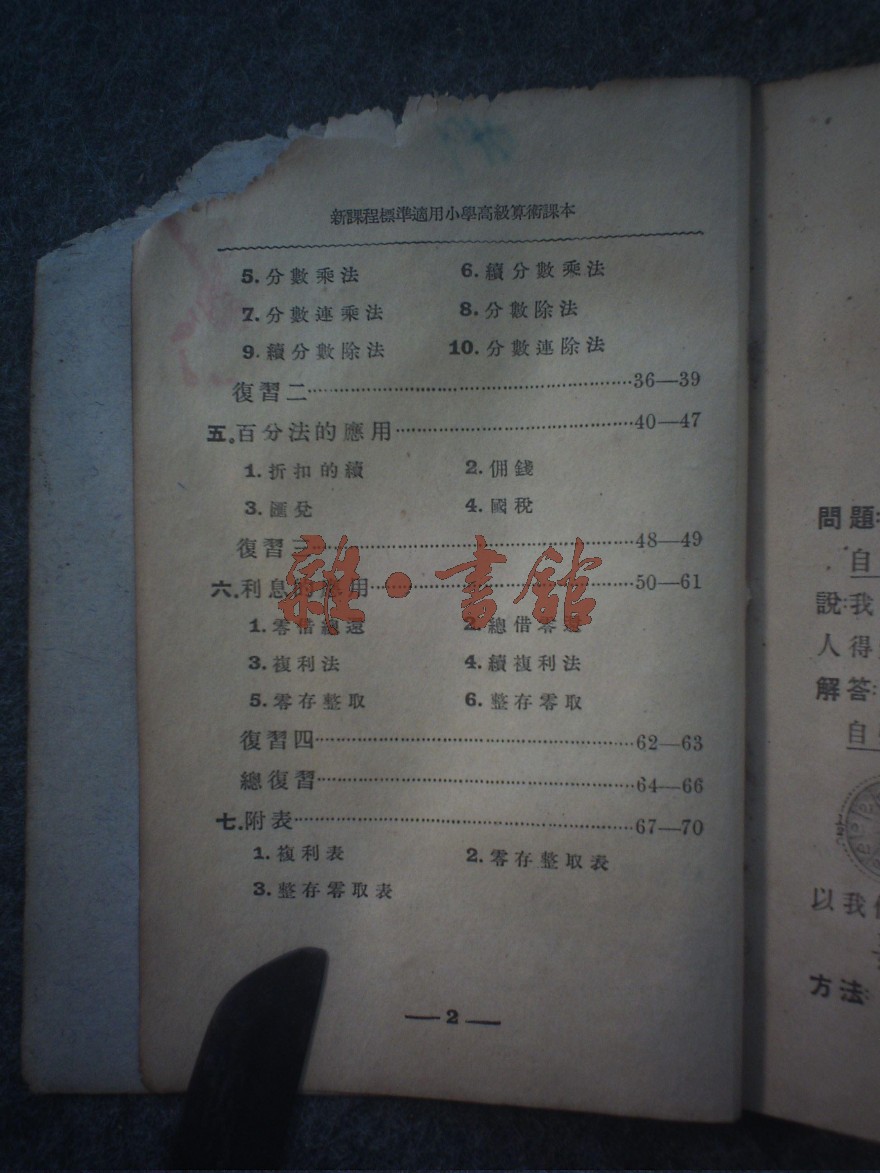 新課程標準適用小學高級算術課本
5. 分數乘法 6. 續分數乘法
7. 分數連乘法 8. 分數除法
9. 續分數除法 10. 分數連除法
復習二……36—39
五。百分法的應用……40—47
1. 折扣的續 2. 佣錢
3. 匯兌 4. 國稅
復習三……48—49
六。利息的應用……50—61
1. 零借總還 2. 總借零還
3. 複利法 4. 續複利法
5. 零存整取 6. 整存零取
復習四……62—63
總復習……64—66
七。附表……67—70
1. 複利表 2. 零存整取表
3. 整存零取表
—2—
雜·書館
問題:
自
說:我
人得
解答:
自
以我
方法: